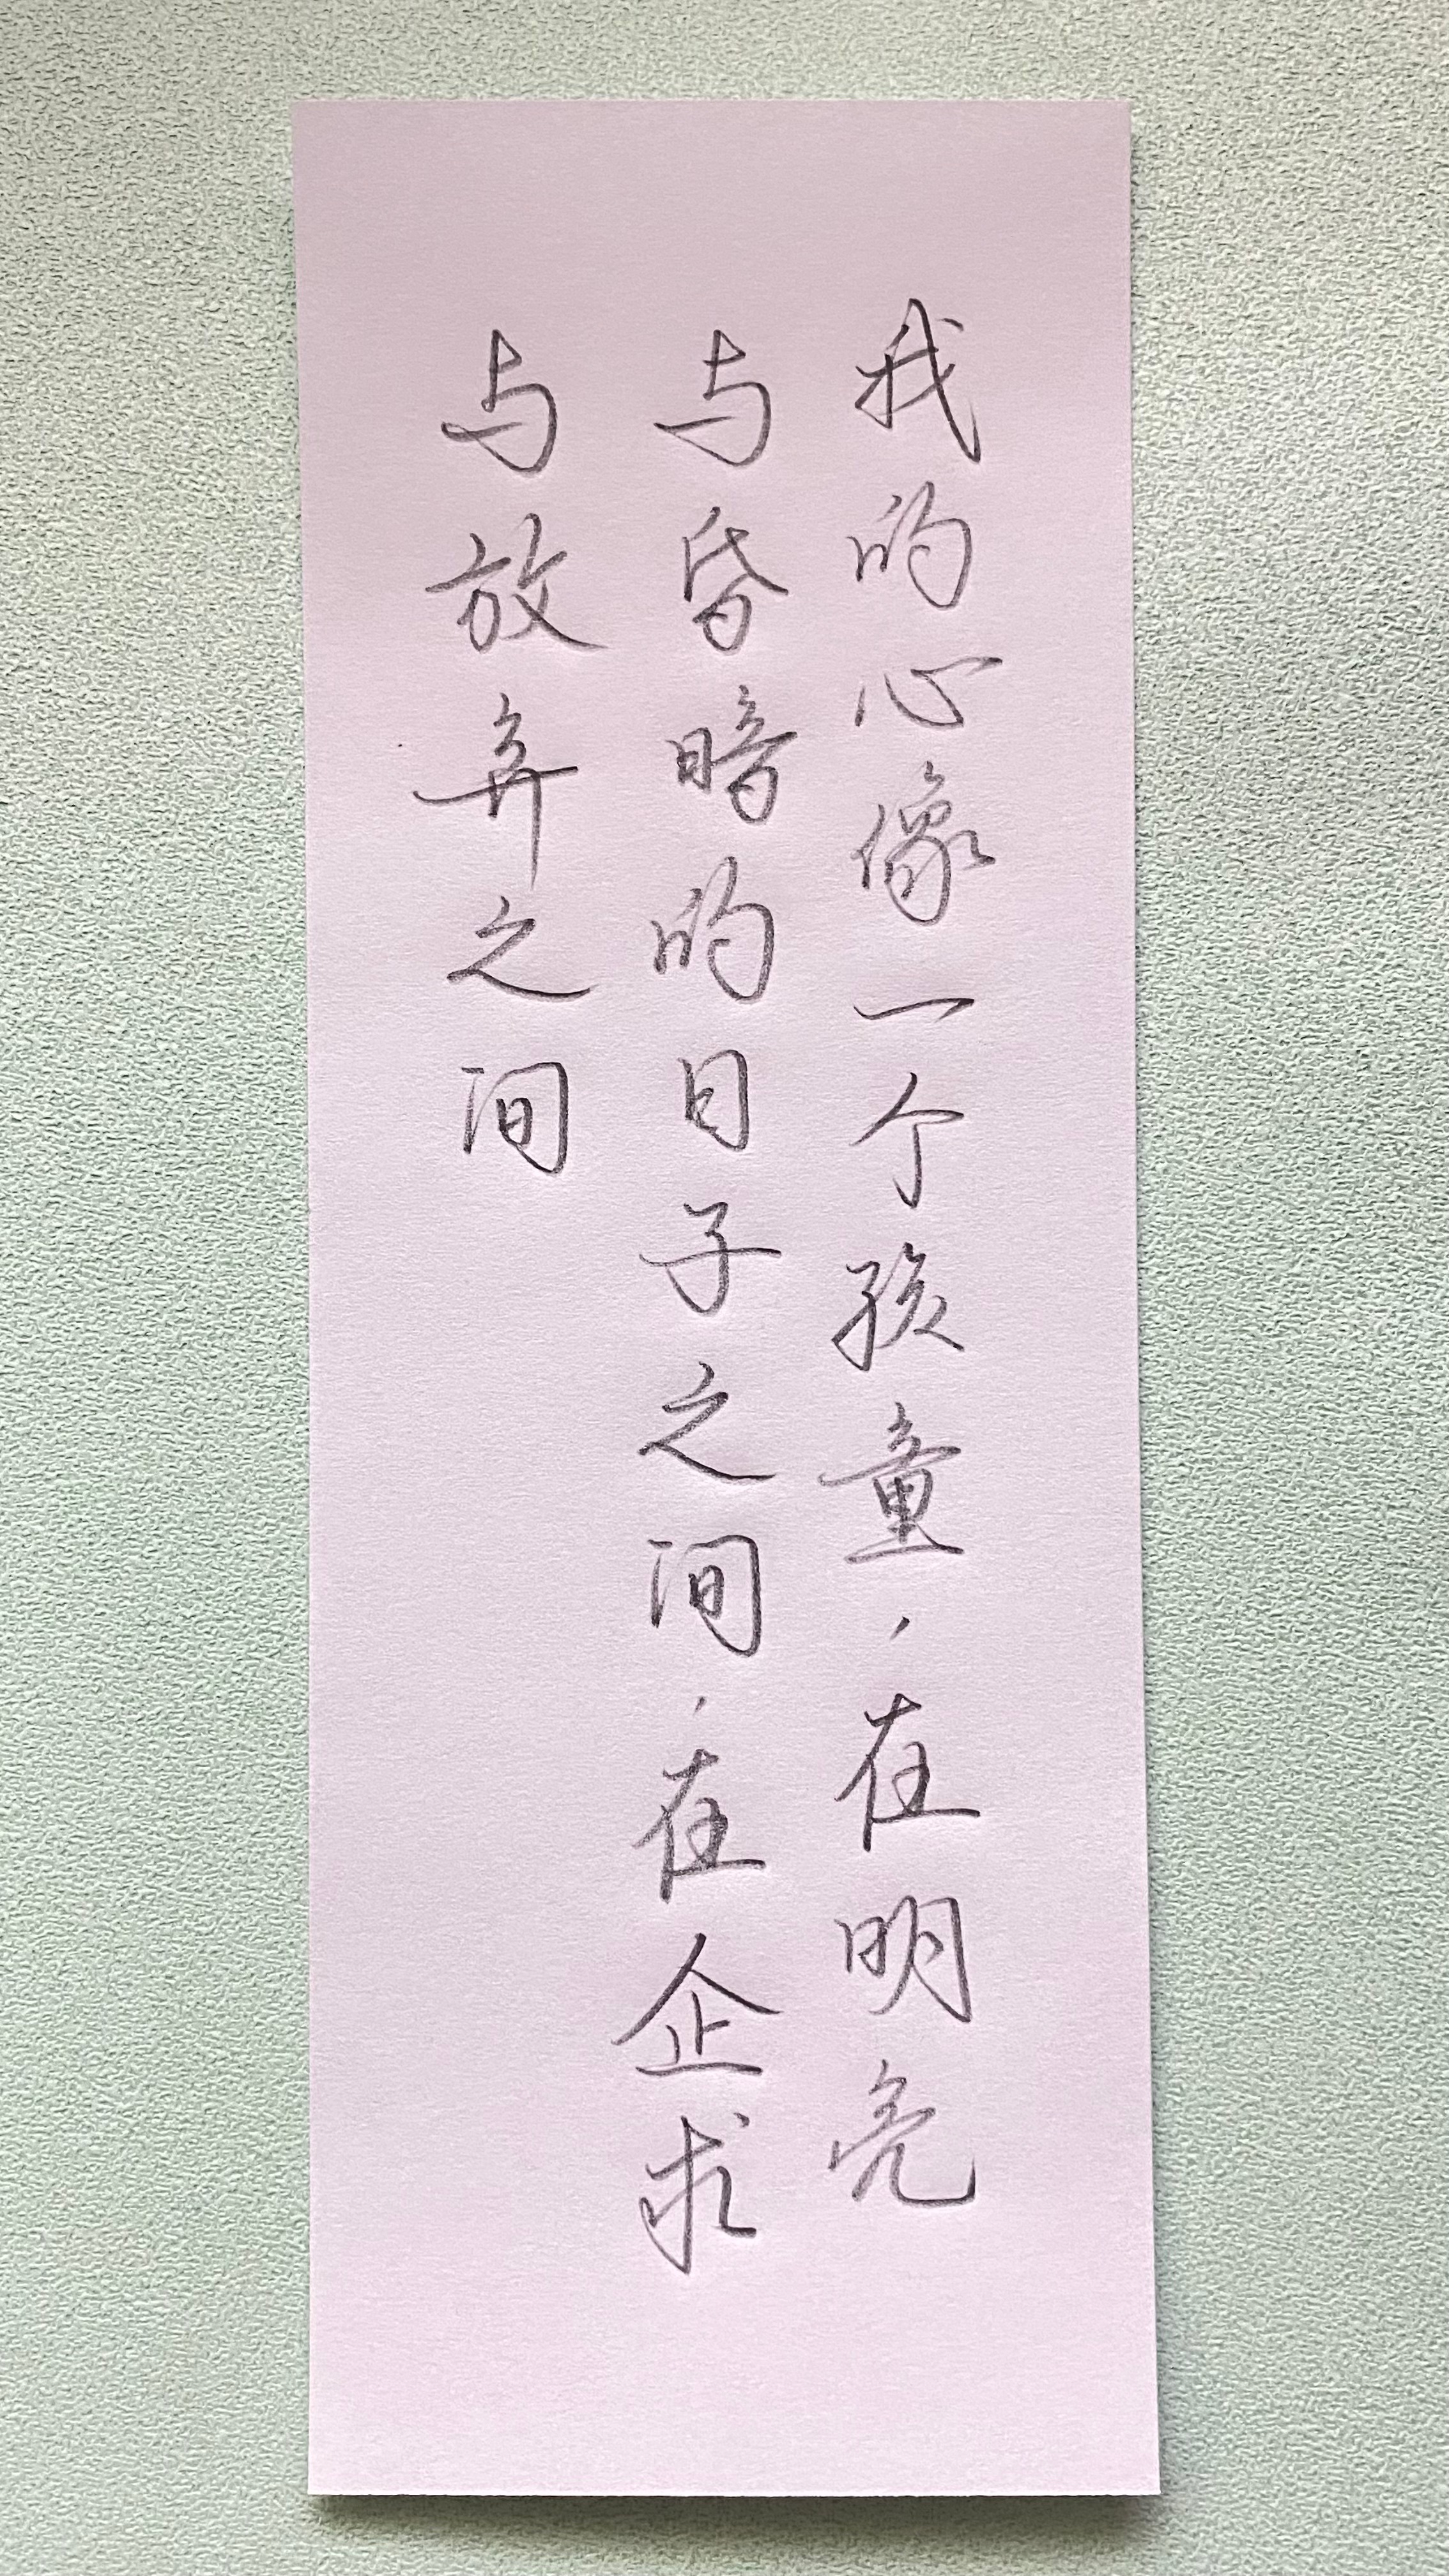 我的心像一个孩童，在明亮
与昏暗的日子之间，在企求
与放弃之间